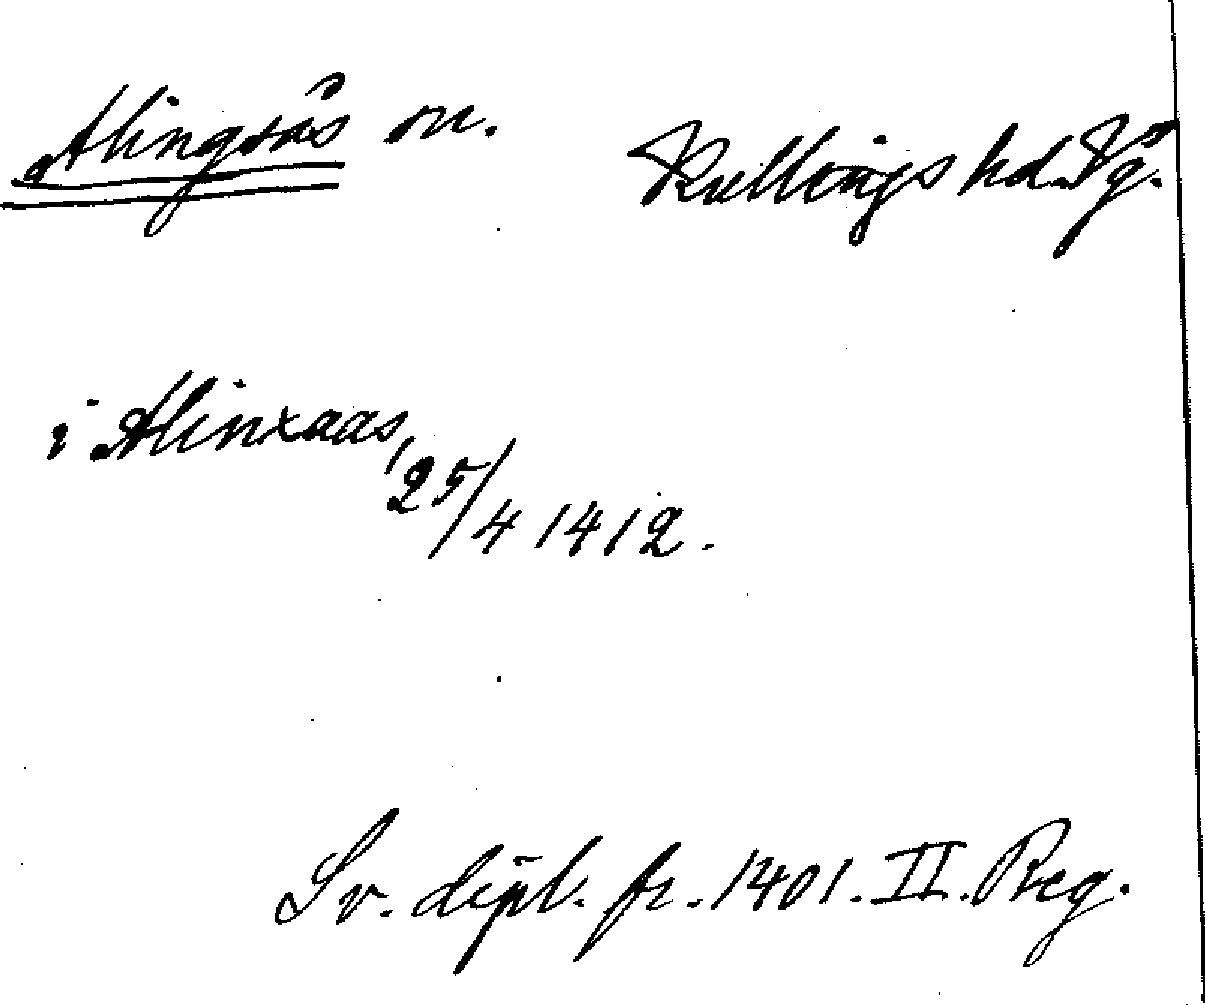 Alingsås sn. Kullings hd. Vg.
i Alinxaas,
25/4 1412.
Sv. dipl. fr. 1401. II. Reg.